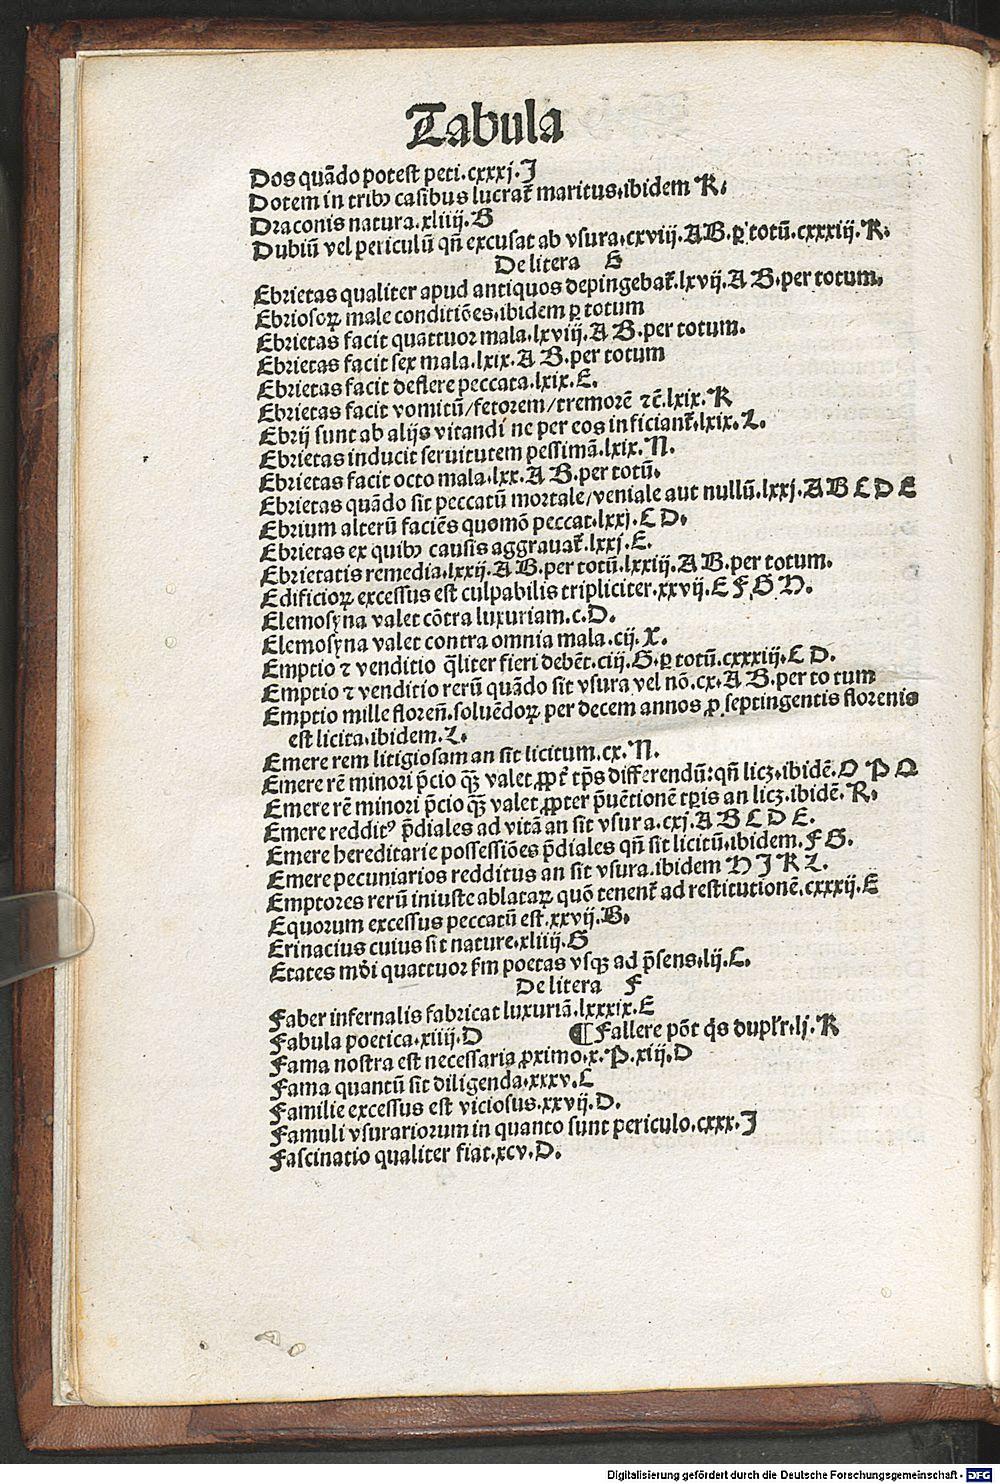 Tabula
Dos quādo potest peti.cxxxj.J
Dotem in tribꝰ casibus lucrat᷑ maritus.ibidem K.
Draconis natura.xliiij.B
Dubiū vel periculū qn̄ excusat ab vsura.cxviij.AB.ꝑ totū.cxxxiij.K.
De litera E
Ebrietas qualiter apud antiquos depingebat᷑.lxvij.A B.per totum.
Ebriosoꝝ male conditiōes.ibidem ꝑ totum
Ebrietas facit quattuor mala.lxviij.A B.per totum.
Ebrietas facit sex mala.lxix.A B.per totum
Ebrietas facit deflere peccata.lxix.E.
Ebrietas facit vomitū/fetorem/tremorē ⁊c̄.lxix.K
Ebrij sunt ab alijs vitandi ne per eos inficiant᷑.lxix.L.
Ebrietas inducit seruitutem pessimā.lxix.N.
Ebrietas facit octo mala.lxx.A B.per totū.
Ebrietas quādo sit peccatū mortale/veniale aut nullū.lxxj.A B C D E
Ebrium alterū faciēs quomō peccat.lxxj.C D.
Ebrietas ex quibꝰ causis aggrauat᷑.lxxj.E.
Ebrietatis remedia.lxxij.A B.per totū.lxxiij.A B.per totum.
Edificioꝝ excessus est culpabilis tripliciter.xxvij.E F G H.
Elemosyna valet cōtra luxuriam.c.D.
Elemosyna valet contra omnia mala.cij.X.
Emptio ⁊ venditio q̄liter fieri debēt.ciij.G.ꝑ totū.cxxxiij.C D.
Emptio ⁊ venditio rerū quādo sit vsura vel nō.cx.A B.per to tum
Emptio mille floreñ.soluēdoꝝ per decem annos ꝓ septingentis florenis
est licita.ibidem.L.
Emere rem litigiosam an sit licitum.cx.N.
Emere rē minori p̄cio qꝫ valet ꝓpt᷑ tp̄s differendū:qn̄ licꝫ.ibidē.O P Q
Emere rē minori p̄cio qꝫ valet ꝓpter p̄uētionē tp̄is an licꝫ.ibidē.R.
Emere redditꝰ p̄diales ad vitā an sit vsura.cxj.A B C D E.
Emere hereditarie possessiōes p̄diales qn̄ sit licitū.ibidem.F G.
Emere pecuniarios redditus an sit vsura.ibidem H J K L.
Emptores rerū iniuste ablataꝝ quō tenent᷑ ad restitutionē.cxxxij.E
Equorum excessus peccatū est.xxvij.B.
Erinacius cuius sit nature.xliiij.G
Etates mūdi quattuor s̄m poetas vsqꝫ ad p̄sens.lij.C.
De litera F
Faber infernalis fabricat luxuriā.lxxxix.E
Fabula poetica.xiiij.D ¶Fallere pōt q̇s dupl̄r.lj.K
Fama nostra est necessaria ꝓximo.x.P.xiij.D
Fama quantū sit diligenda.xxxv.C
Familie excessus est viciosus.xxvij.D.
Famuli vsurariorum in quanto sunt periculo.cxxx.J
Fascinatio qualiter fiat.xcv.D.
Digitalisierung gefördert durch die Deutsche Forschungsgemeinschaft - DFG